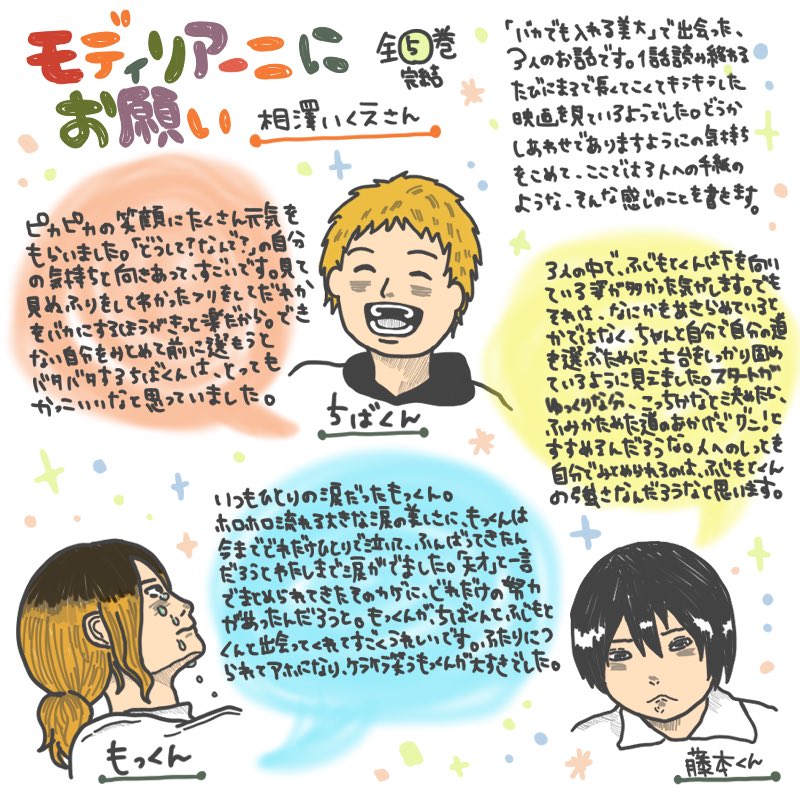 モディリアーニに
お願い
全5巻
完結
相澤いくえさん
「バカでも入れる美大」で出会った、
3人のお話です。1話読み終れる
たびにまるで長くてこくてキラキラした
映画を見ているようでした。どうか
しあわせでありますようにの気持ち
をこめて、ここでは3人への手紙の
ような、そんな感じのことを書きます。
ピカピカの笑顔にたくさん元気を
もらいました。「どうして?なんで?」の自分
の気持ちと向きあって、すごいです。見て
見ぬふりをしてわかったフリをしてだれか
をバカにするほうがきっと楽だから。でき
ない自分をみとめて前に進もうと
バタバタするちばくんは、とっても
かっこいいなと思っていました。
ちばくん
3人の中で、ふじもとくんは下を向い
ている事が多かった気がします。でも
それは、なにかをあきらめていると
かではなく、ちゃんと自分で自分の道
を選ぶために、土台をしっかり固め
ているように見えました。スタートが
ゆっくりな分、こっちかなと決めたら、
ふみかためた道のおかげでグン!と
すすめるんだろうな。人へのしっとを
自分でみとめられるのは、ふじもとくん
の強さなんだろうなと思います。
いつもひとりの涙だったもっくん。
ホロホロ流れる大きな涙の美しさに、もっくんは
今までどれだけひとりで泣いて、ふんばってきたん
だろうとわたしまで涙がでました。「天才」と一言
でまとめられてきたそのカゲに、どれだけの努力
があったんだろうと。もっくんが、ちばくんと、ふじもと
くんと出会ってくれてすごくうれしいです。ふたりにつ
られてアホになり、ケラケラ笑うもっくんが大すきでした。
もっくん
藤本くん